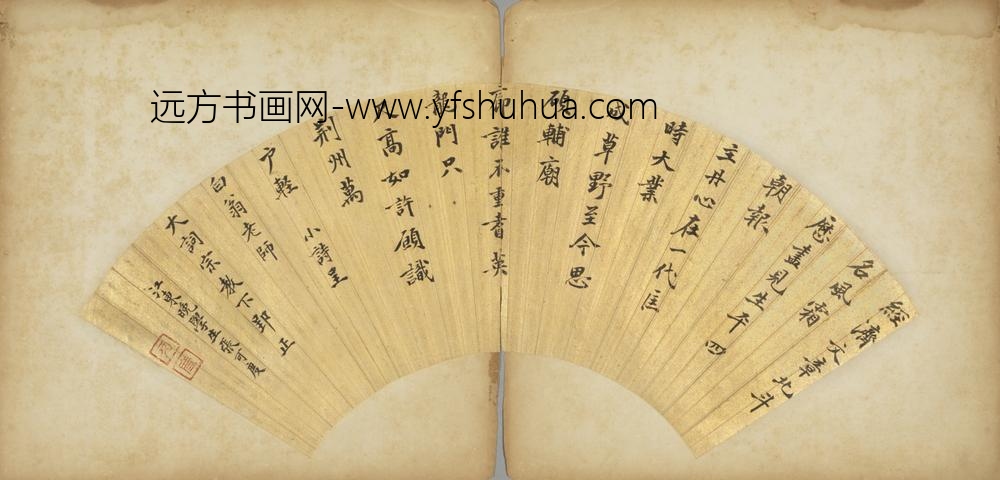 远方书画网-www.yfshuhua.com
經濟文章北斗
名風霜
歷盡見生平四
朝報
主丹心在一代匡
時大業
成草野至今思
碩輔廟
廊誰不重耆英
龍門只
高如許願識
荊州萬
户輕
小詩呈
白翁老師
大詞宗教下郢正
江東晚學生張可度